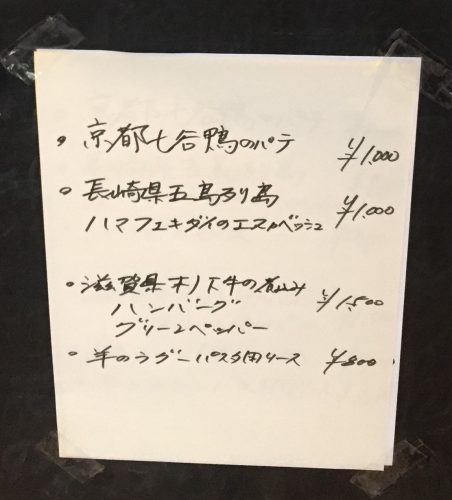 ・京都七谷鴨のパテ ¥1,000
・長崎県五島列島
ハマフエキダイのエスカベッシュ ¥1,000
・滋賀県木ノ下牛の煮込み ¥1,500
ハンバーグ
グリーンペッパー
・羊のラグーパスタ用ソース ¥800